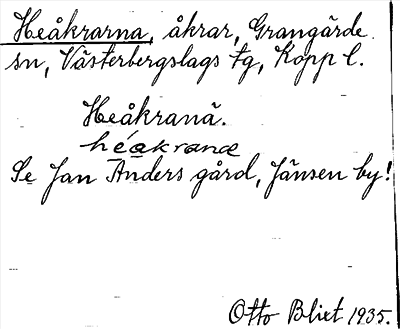 Heåkrarna, åkrar, Grangärde
sn, Västerbergslags tg, Kopp l.
Heåkranä.
héakranæ
Se Jan Anders gård, Jänsen by!
Otto Blixt 1935.